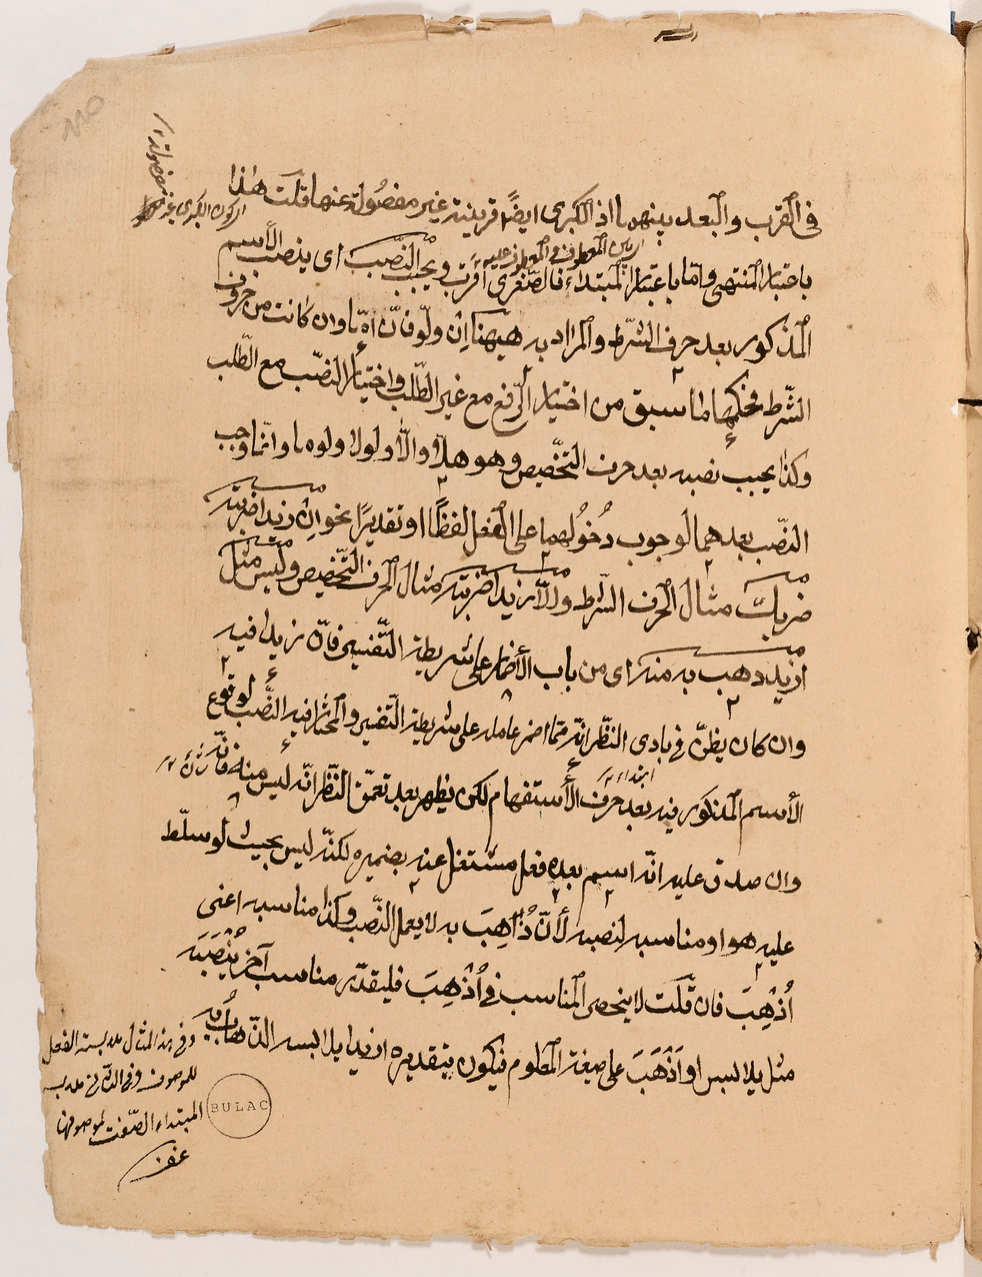 في القرب والبعد بينهما اذ الكبرى ايضًا قريبة غير مفصولة عنها قلت هذا
باعتبار المنتهى واما باعتبار المبتداء فالصّغرى اقرب ويجب النّصب اى ينصب الأسم
المذكور بعد حرف الشّرط والمراد به ههنا اِنْ ولَو فانّ امّا وان كانت من حروف
الشّرط فحكمها ما سبق من اختيار الرّفع مع غير الطّلب واختيار النصّب مع الطّلب
وكذا يجب نصبه بعد حرف التحّضيض وهو هلّا والّا ولولا ولوما وانّما وجب
النصّب بعدهما لوجوب دُخُولهما على الفعل لفظًا او تقديرًا نحو اِنْ زيدا ضربته
ضربك مثال الحرف الشّرط والّا زيدا ضربته مثال الحرف التحّضيض وليس مثل
ازيد ذهب به منه اى من باب الأضمار على شريطة التّفسير فانّ زيدا فيه
وان كان يظنّ في بادى النظّر انّه ممّا اضمر عامله على شريطة التّفسير والمختار فيه النصّب لوقوع
الأسم المذكور فيه بعد حرف الأستفهام لكن يظهر بعد تعمّق النّظر انّه ليس منه فانّه
وان صدق عليه انّه اسم بعده فعل مشتغل عنه بضميره لكنّه ليس بحيث لو سلّط
عليه هو او مناسبه لنصبه لأنّ ذُهِبَ به لا يعمل النّصب وكذا مناسبه اعنى
اُذْهِبَ فان قلت لا ينحصر المناسب في اُذْهِبَ فليقدّر مناسب آخر يَنْصِبَه
مثل يلابس او اَذْهَبَ على صيغة المعلوم فيكون تقديره ازيدا يلابسه الذّهاب به
وفي هذا المثال ملابسة الفعل
للموصوف وفي الثّانى ملابسة
المبتداء الصّفت لموصوفها
BULAC